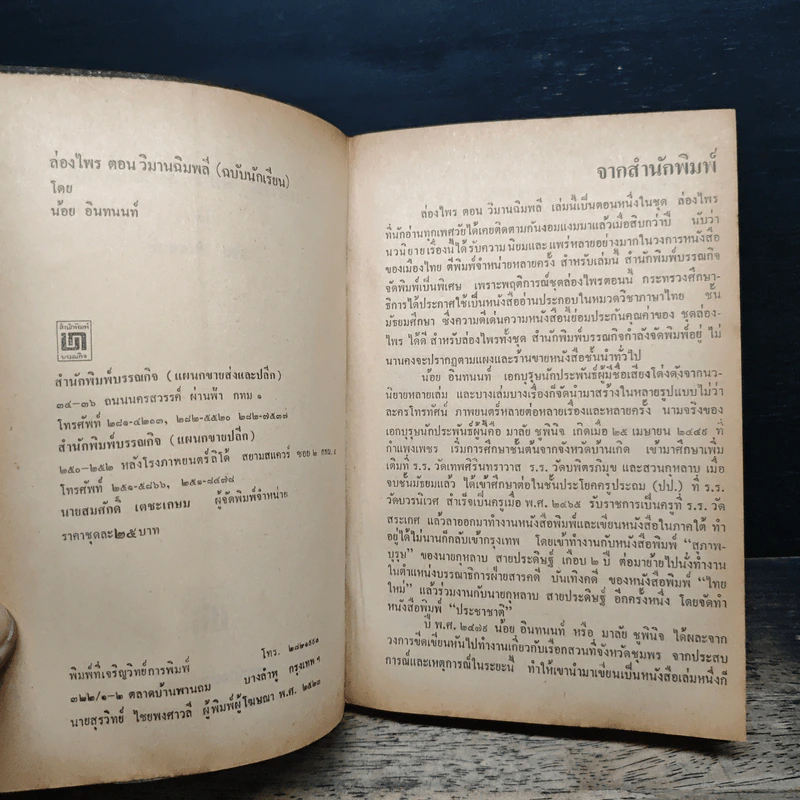 ล่องไพร ตอน วิมานฉิมพลี (ฉบับนักเรียน)
โดย
น้อย อินทนนท์
สำนักพิมพ์
บรรณกิจ
สำนักพิมพ์บรรณกิจ (แผนกขายส่งและปลีก)
๓๔-๓๖ ถนนนครสวรรค์ ผ่านฟ้า กทม ๑
โทรศัพท์ ๒๘๑-๔๒๑๓, ๒๘๒-๕๕๒๐ ๒๘๒-๗๕๓๗
สำนักพิมพ์บรรณกิจ (แผนกขายปลีก)
๒๕๐-๒๕๒ หลังโรงภาพยนตร์ลิโด้ สยามสแควร์ ซอย ๒ กทม. ๕
โทรศัพท์ ๒๕๑-๕๘๖๖, ๒๕๑-๘๔๗๔
นายสมศักดิ์ เตชะเกษม ผู้จัดพิมพ์จำหน่าย
ราคาชุดละ ๒๕ บาท
พิมพ์ที่เจริญวิทย์การพิมพ์ โทร.
๓๒๒/๑-๒ ตลาดบ้านพานถม บางลำพู กรุงเทพ ฯ
นายสุรวิทย์ ไชยพงศาวลี ผู้พิมพ์ผู้โฆษณา พ.ศ. ๒๕๒๓
จากสำนักพิมพ์
ล่องไพร ตอน วิมานฉิมพลี เล่มนี้เป็นตอนหนึ่งในชุด ล่องไพร
ที่นักอ่านทุกเพศวัยได้เคยติดตามกันงอมแงมมาแล้วเมื่อสิบกว่าปี นับว่า
นวนิยายเรื่องนี้ได้รับความนิยมและแพร่หลายอย่างมากในวงการหนังสือ
ของเมืองไทย ตีพิมพ์จำหน่ายหลายครั้ง สำหรับเล่มนี้ สำนักพิมพ์บรรณกิจ
จัดพิมพ์เป็นพิเศษ เพราะพฤติการณ์ชุดล่องไพรตอนนี้ กระทรวงศึกษา-
ธิการได้ประกาศใช้เป็นหนังสืออ่านประกอบในหมวดวิชาภาษาไทย ชั้น
มัธยมศึกษา ซึ่งความดีเด่นความหนังสือนี้ย่อมประกันคุณค่าของ ชุดล่อง-
ไพร ได้ดี สำหรับล่องไพรทั้งชุด สำนักพิมพ์บรรณกิจกำลังจัดพิมพ์อยู่ ไม่
นานคงจะปรากฏตามแผงและร้านขายหนังสือชั้นนำทั่วไป
น้อย อินทนนท์ เอกบุรุษนักประพันธ์ผู้มีชื่อเสียงโด่งดังจากนว-
นิยายหลายเล่ม และบางเล่มบางเรื่องก็จัดนำมาสร้างในหลายรูปแบบไม่ว่า
ละครโทรทัศน์ ภาพยนตร์หลายต่อหลายเรื่องและหลายครั้ง นามจริงของ
เอกบุรุษนักประพันธ์ผู้นี้คือ มาลัย ชูพินิจ เกิดเมื่อ ๒๕ เมษายน ๒๔๔๙ ที่
กำแพงเพชร เริ่มการศึกษาชั้นต้นจากจังหวัดบ้านเกิด เข้ามาศึกษาเพิ่ม
เติมที่ ร.ร. วัดเทพศิรินทราวาส ร.ร. วัดบพิตรภิมุข และสวนกุหลาบ เมื่อ
จบชั้นมัธยมแล้ว ได้เข้าศึกษาต่อในชั้นประโยคครูประถม (ปป.) ที่ ร.ร.
วัดบวรนิเวศ สำเร็จเป็นครูเมื่อ พ.ศ. ๒๔๖๕ รับราชการเป็นครูที่ ร.ร. วัด
สระเกศ แล้วลาออกมาทำงานหนังสือพิมพ์และเขียนหนังสือในภาคใต้ ทำ
อยู่ได้ไม่นานก็กลับเข้ากรุงเทพ โดยเข้าทำงานกับหนังสือพิมพ์ “สุภาพ-
บุรุษ” ของนายกุหลาบ สายประดิษฐ์ เกือบ ๒ ปี ต่อมาย้ายไปนั่งทำงาน
ในตำแหน่งบรรณาธิการฝ่ายสารคดี บันเทิงคดี ของหนังสือพิมพ์ “ไทย
ใหม่” แล้วร่วมงานกับนายกุหลาบ สายประดิษฐ์ อีกครั้งหนึ่ง โดยจัดทำ
หนังสือพิมพ์ “ประชาชาติ”
ปี พ.ศ. ๒๔๗๙ น้อย อินทนนท์ หรือ มาลัย ชูพินิจ ได้ผละจาก
วงการขีดเขียนหันไปทำงานเกี่ยวกับเรือกสวนที่จังหวัดชุมพร จากประสบ
การณ์และเหตุการณ์ในระยะนี้ ทำให้เขานำมาเขียนเป็นหนังสือเล่มหนึ่งก็